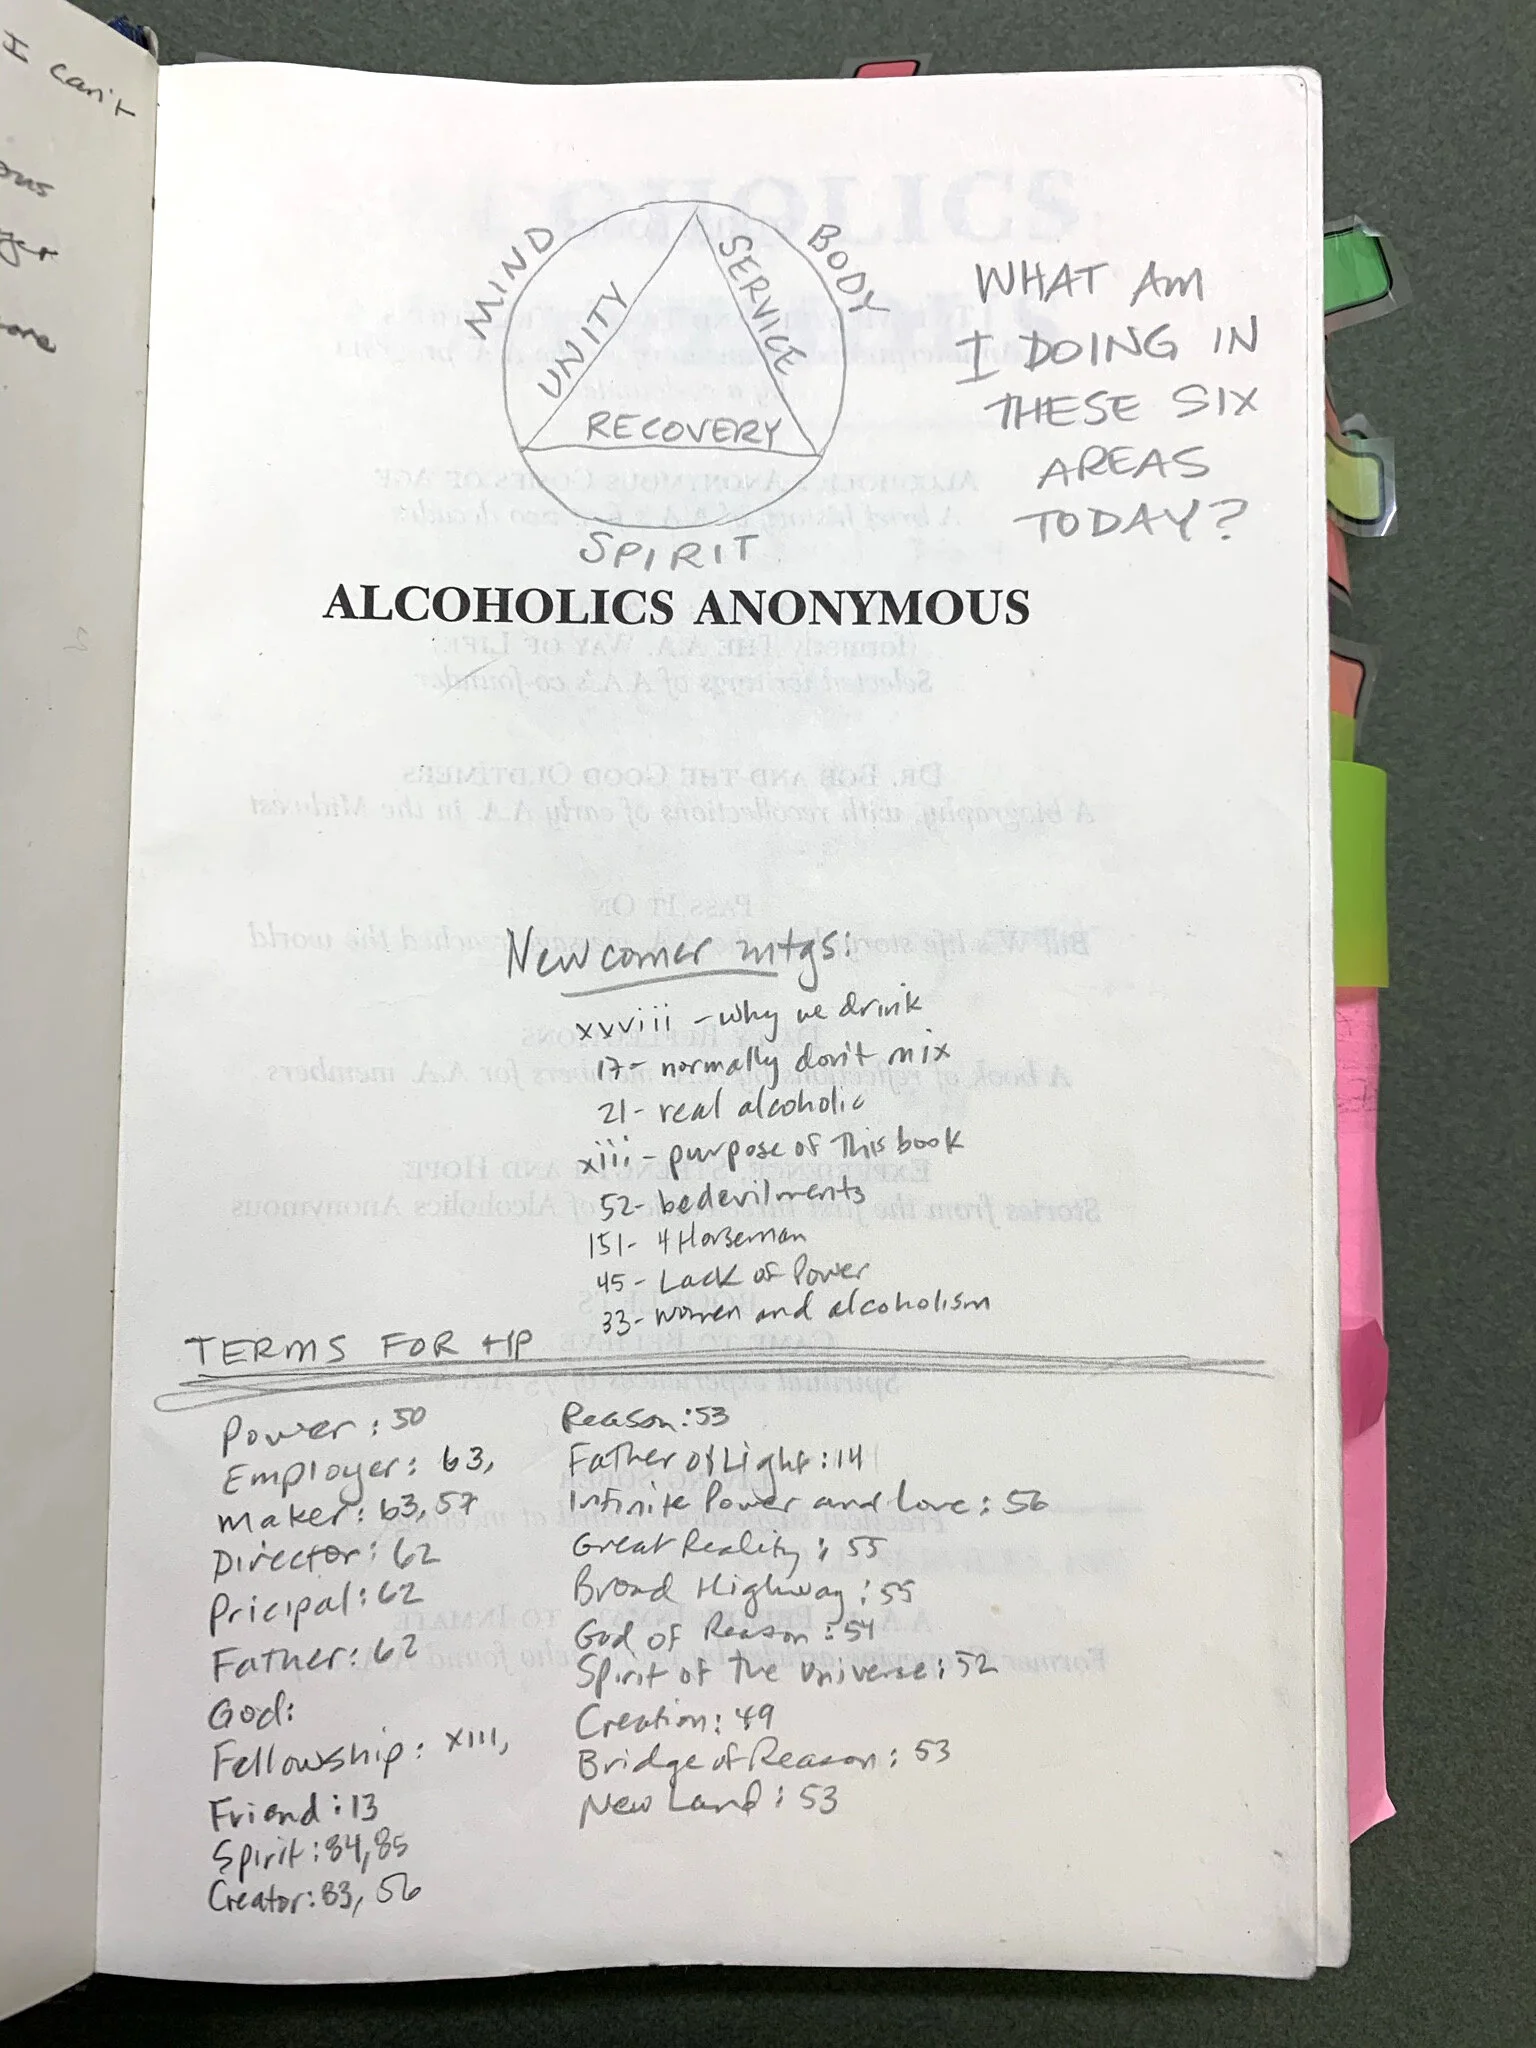 I can't
MIND
BODY
UNITY
SERVICE
RECOVERY
SPIRIT
WHAT AM
I DOING IN
THESE SIX
AREAS
TODAY?
ALCOHOLICS ANONYMOUS
Newcomer mtgs:
xxviii - why we drink
17- normally don't mix
21- real alcoholic
xiii- purpose of this book
52- bedevilments
151- 4 Horseman
45- Lack of Power
33- women and alcoholism
TERMS FOR HP
Power: 50
Employer: 63,
Maker: 63, 57
Director: 62
Pricipal: 62
Father: 62
God:
Fellowship: xiii,
Friend: 13
Spirit: 84, 85
Creator: 83, 56
Reason: 53
Father of Light: 14
Infinite Power and Love: 56
Great Reality: 55
Broad Highway: 55
God of Reason: 54
Spirit of the Universe: 52
Creation: 49
Bridge of Reason: 53
New Land: 53